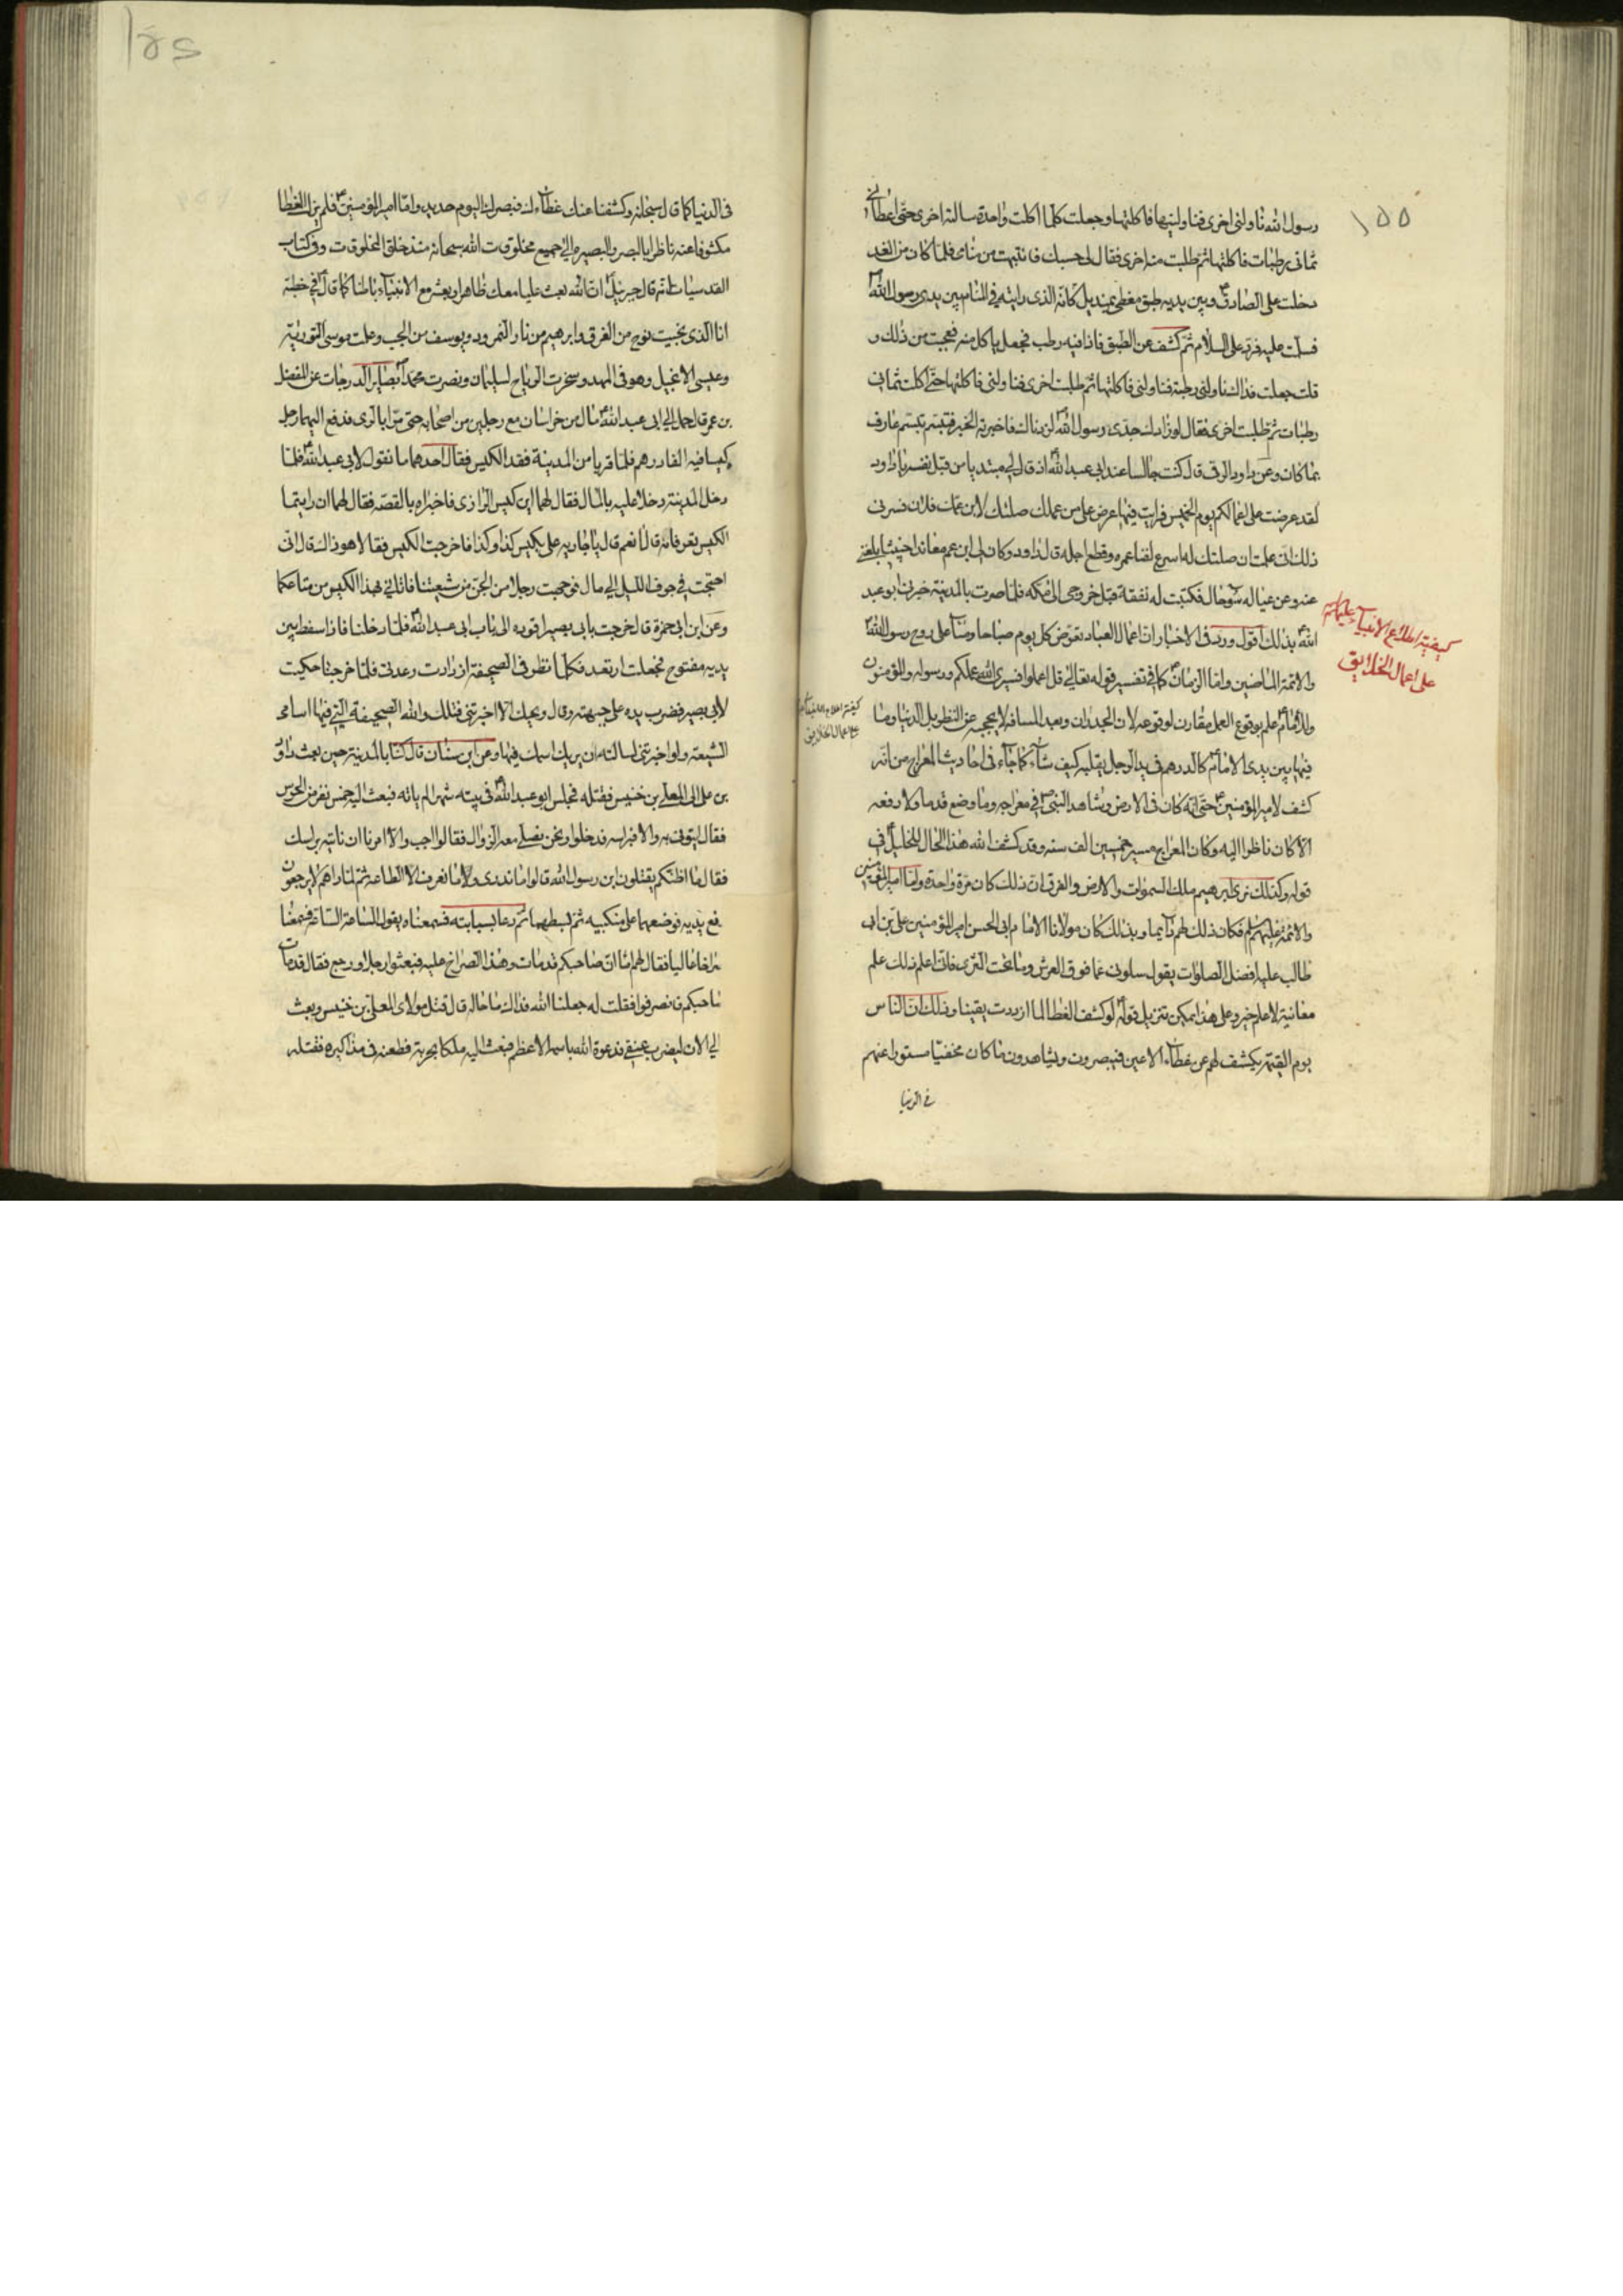 ١٥٥
رسول الله ناولنى اخرى فناولنيها فاكلتها وجعلت كلما اكلت واحدة سالته اخرى حتى اعطانى
ثمانى رطبات فاكلتها ثم طلبت منه اخرى فقال لى حسبك فانتبهت من منامى فلما كان من الغد
دخلت على الصادق ع وبين يديه طبق مغطى بمنديل كانه الذى رايته فى المنام بين يدى رسول الله
فسلمت عليه فرد على السلام ثم كشف عن الطبق فاذا فيه رطب فجعل ياكل منه فعجبت من ذلك و
قلت جعلت فداك ناولنى رطبة فناولنى فاكلتها ثم طلبت اخرى فناولنى فاكلتها حتى اكلت ثمانى
رطبات ثم طلبت اخرى فقال لو زادك جدى رسول الله لزدناك فاخبرته الخبر فتبسم تبسم عارف
بما كان وعن داود الرقى قال كنت جالسا عند ابى عبد الله ع اذ قال لى مبتديا من قبل نفسه يا داود
لقد عرضت على اعمالكم يوم الخميس فرايت فيما عرض على من عملك صلتك لابن عمك فلان فسرنى
ذلك انى علمت ان صلتك له اسرع لفناء عمره وقطع اجله قال داود وكان لى ابن عم معاندا خبيثا بلغنى
عنه وعن عياله سوء حال فكتبت له نفقة قبل خروجى الى مكه فلما صرت بالمدينة خبرنى ابو عبد
الله ع بذلك اقول ورد فى الاخبار ان اعمال العباد تعرض كل يوم صباحا ومساء على روح رسول الله
والائمة الماضين وامام الزمان ع كما فى تفسير قوله تعالى قل اعملوا فسيرى الله عملكم ورسوله والمؤمنون
وللامام ع علم بوقوع العمل مقارن لوقوعه لان الجدران وبعد المسافه لا يحجبه عن النظر بل الدنيا وما
فيها بين يدى الامام ع كالدرهم فى يد الرجل يقلبه كيف شاء كما جاء فى احاديث المعراج من انه
كشف لامير المؤمنين ع حتى انه كان فى الارض وشاهد النبى ص فى معراجه وما وضع قدما ولا رفعه
الا كان ناظرا اليه وكان المعراج مسير خمسين الف سنه وقد كشف الله هذا الحال للخليل ع فى
قوله وكذلك نرى ابرهيم ملك السموات والارض والفرق ان ذلك كان مرة واحدة واما امير المؤمنين
والائمة عليهم السلم فكان ذلك لهم دائما وبذلك كان مولانا الامام ابى الحسن امير المؤمنين على بن ابى
طالب عليه افضل الصلوات يقول سلونى عما فوق العرش وما تحت الثرى فانى اعلم ذلك علم
معاينة لا علم خبر وعلى هذا يمكن تنزيل قوله ع لو كشف الغطا لما ازددت يقينا وذلك ان الناس
يوم القيمة يكشف لهم عن غطاء الاعين فيبصرون ويشاهدون ما كان مخفيا مستورا عنهم
فى الدنيا
كيفية اطلاع الانبياء عليهم السلام
على اعمال الخلايق
على اعمال الخلايق
فى الدنيا كما قال سبحانه وكشفنا عنك غطاءك فبصرك اليوم حديد واما امير المؤمنين ع فلم يزل الغطا
مكشوفا عنه ناظرا بالبصر والبصيره الى جميع مخلوقات الله سبحانه منذ خلق المخلوقات وفى كتاب
القدسيات انه قال جبرئيل ع ان الله بعث عليا معك ظاهرا وبعثه مع الانبياء باطنا كما قال ع فى خطبة
انا الذى نجيت نوح من الغرق وابرهيم من نار النمرود ويوسف من الجب وعلمت موسى التورية
وعيسى الانجيل وهو فى المهد وسخرت الرياح لسليمان ونصرت محمدا بصاير الدرجات عن المفضل
بن عمر قال حمل الى ابى عبد الله ع مال من خراسان مع رجلين من اصحابه حتى مرا بالرى فدفع اليهما رجل
كيسا فيه الفا درهم فلما قربا من المدينة فقد الكيس فقال احدهما ما نقول لابى عبد الله ع فلما
دخلا المدينة دخلا عليه بالمال فقال لهما اين كيس الرازى فاخبراه بالقصة فقال لهما ان رايتما
الكيس تعرفانه قالا نعم قال يا جاريه على بكيس كذا وكذا فاخرجت الكيس فقالا هو ذاك قال انى
احتجت فى جوف الليل الى مال فوجهت رجلا من الجن من شيعتنا فاتانى بهذا الكيس من متاعكما
وعن ابن ابى حمزة قال خرجت بابى بصير اقوده الى باب ابى عبد الله ع فلما دخلنا فاذا سفط بين
يديه مفتوح فجعلت ارتعد فكلما نظر فى الصحيفة ازدادت رعدتى فلما خرجنا حكيت
لابى بصير فضرب يده على جبهته وقال ويحك الا اخبرتنى فتلك والله الصحيفة التى فيها اسامى
الشيعة ولو اخبرتنى لسالته ان يريك اسمك فيها وعن ابن سنان قال كنا بالمدينة حين بعث داود
بن على الى المعلى بن خنيس فقتله فجلس ابو عبد الله ع فى بيته شهرا لم ياته فبعث اليه خمس نفر من الحرس
فقال ايتونى به والا فبراسه فدخلوا ونحن نصلى معه الزوال فقالوا اجب والا امرنا ان ناتيه براسك
فقال ما اظنكم تقتلون ابن رسول الله قالوا ما ندرى ولا ما نعرف الا الطاعة ثم لما راهم لا يرجعون
رفع يديه فوضعهما على منكبيه ثم بسطهما ثم دعا بسبابته فسمعناه يقول الساعة الساعة فسمعنا
صراخا عاليا فقال لهم اما ان صاحبكم قد مات وهذا الصراخ عليه فبعثوا رجلا ورجع فقال قد مات
صاحبكم فانصرفوا فقلت له جعلنا الله فداك ما حاله قال قتل مولاى المعلى بن خنيس وبعث
الى الان ليضرب عنقى فدعوة الله باسمه الاعظم فبعث اليه ملكا بحربة فطعنه فى مذاكيره فقتله